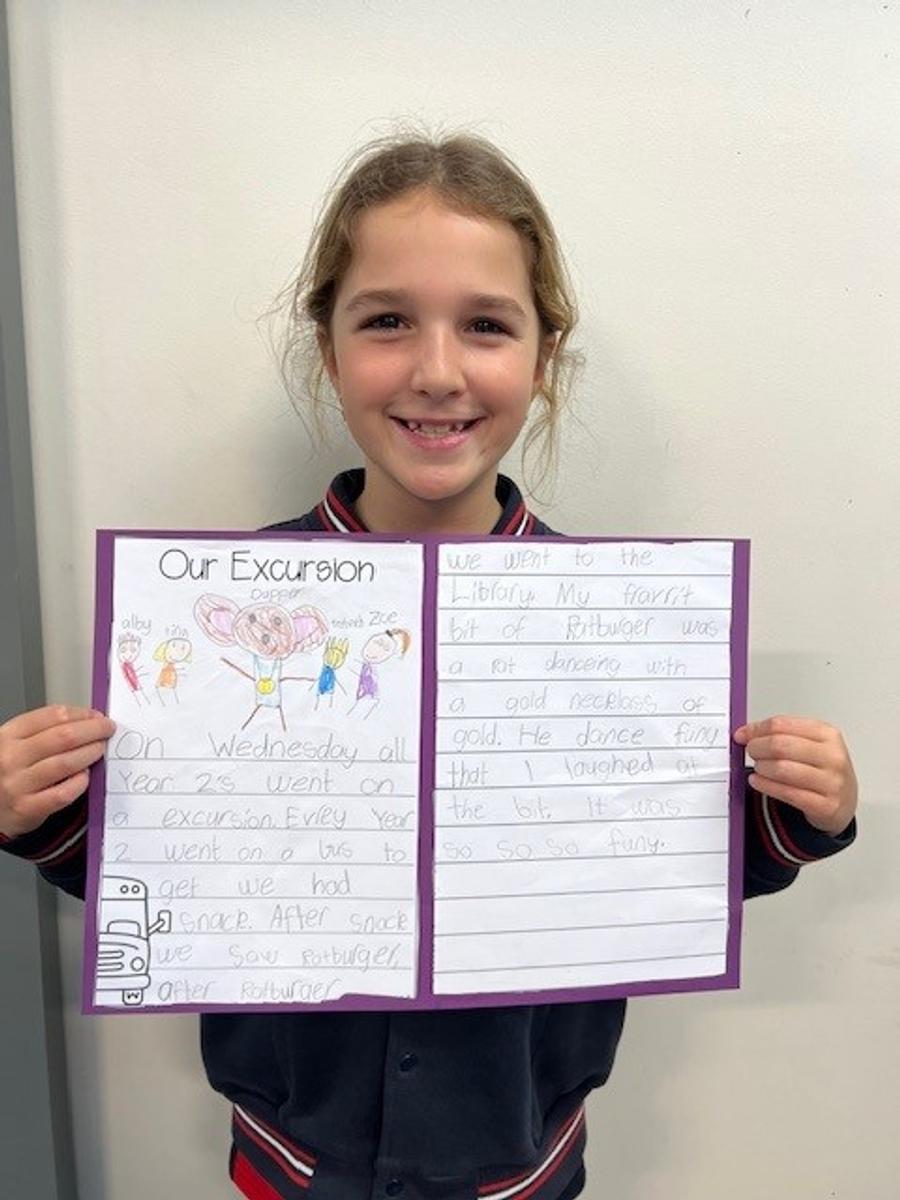 Our Excursion
Dapper
alby
tina
Zoe
On Wednesday all
Year 2's went on
a excursion. Evrey Year
2 went on a bus to
get we had
snack. After snack
we saw Ratburger,
after Ratburger
we went to the
Library. My fravrit
bit of Ratburger was
a rat danceing with
a gold neckloss of
gold. He dance funy
that I laughed at
the bit. It was
so so so funy.